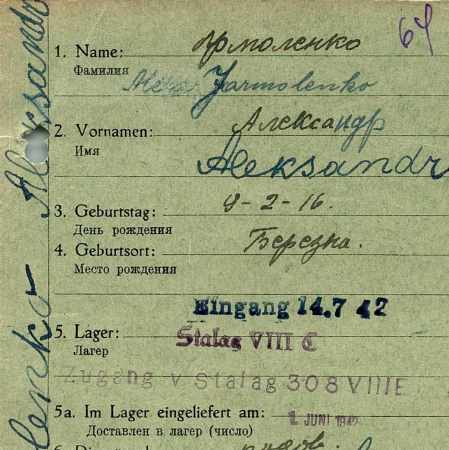 64
Ярмоленко
1. Name:
Фамилия
Jarmolenko
Александр
2. Vornamen:
Имя
Aleksandr
3. Geburtstag: 8-2-16.
День рождения
4. Geburtsort: Березка.
Место рождения
Eingang 14.7 42
5. Lager: Stalag VIII C
Лагер
Zugang v Stalag 308 VIII E
5a. Im Lager eingeliefert am:
Доставлен в лагер (число) JUNI 1942
6.
lenko Aleksandr